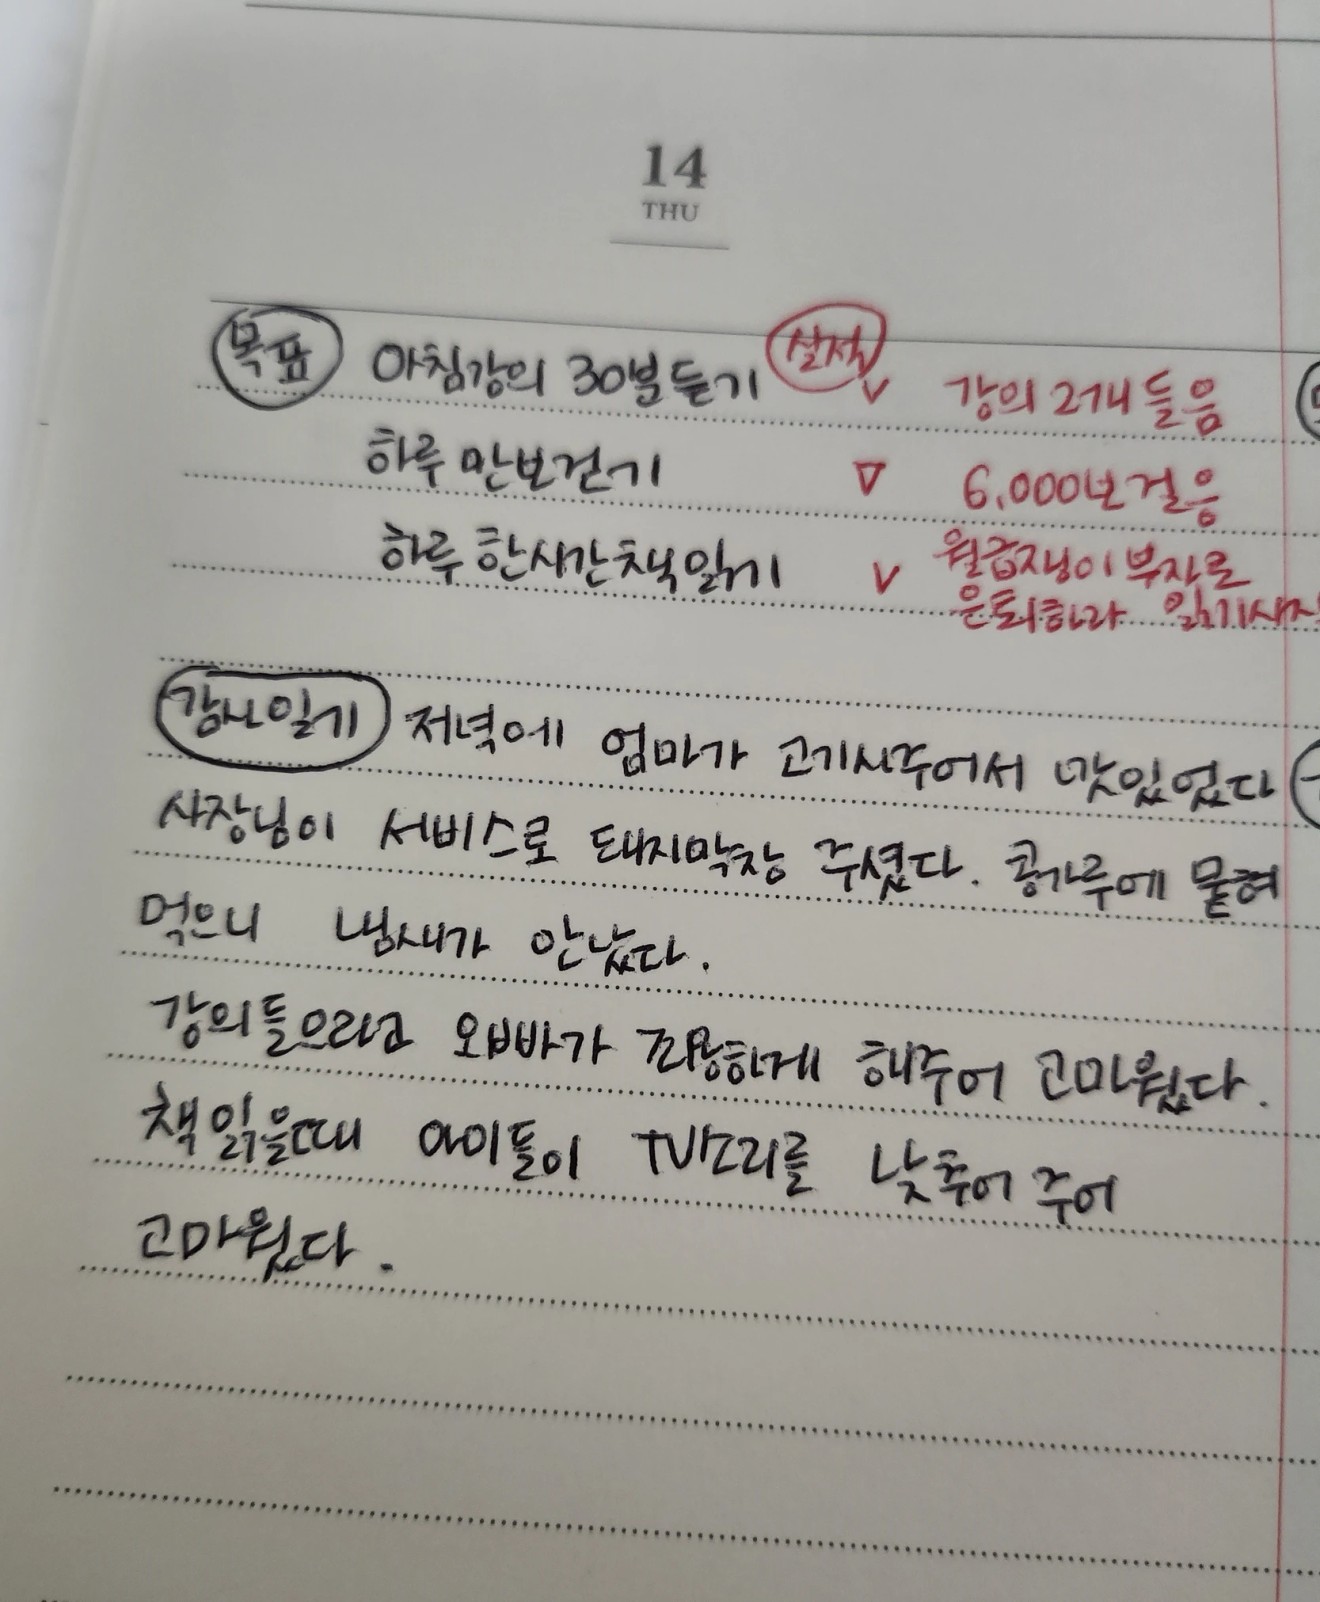 14
THU
목표 아침강의 30분듣기 실적 v 강의 2개 들음
하루 만보걷기 ▽ 6,000보 걸음
하루 한시간책읽기 v 월급쟁이 부자로
은퇴하라 읽기시작
감사일기 저녁에 엄마가 고기사주어서 맛있었다
사장님이 서비스로 돼지막창 주셨다. 콩가루에 뭍혀
먹으니 냄새가 안났다.
강의들으라고 오빠가 조용하게 해주어 고마웠다.
책읽을때 아이들이 TV소리를 낮추어 주어
고마웠다.